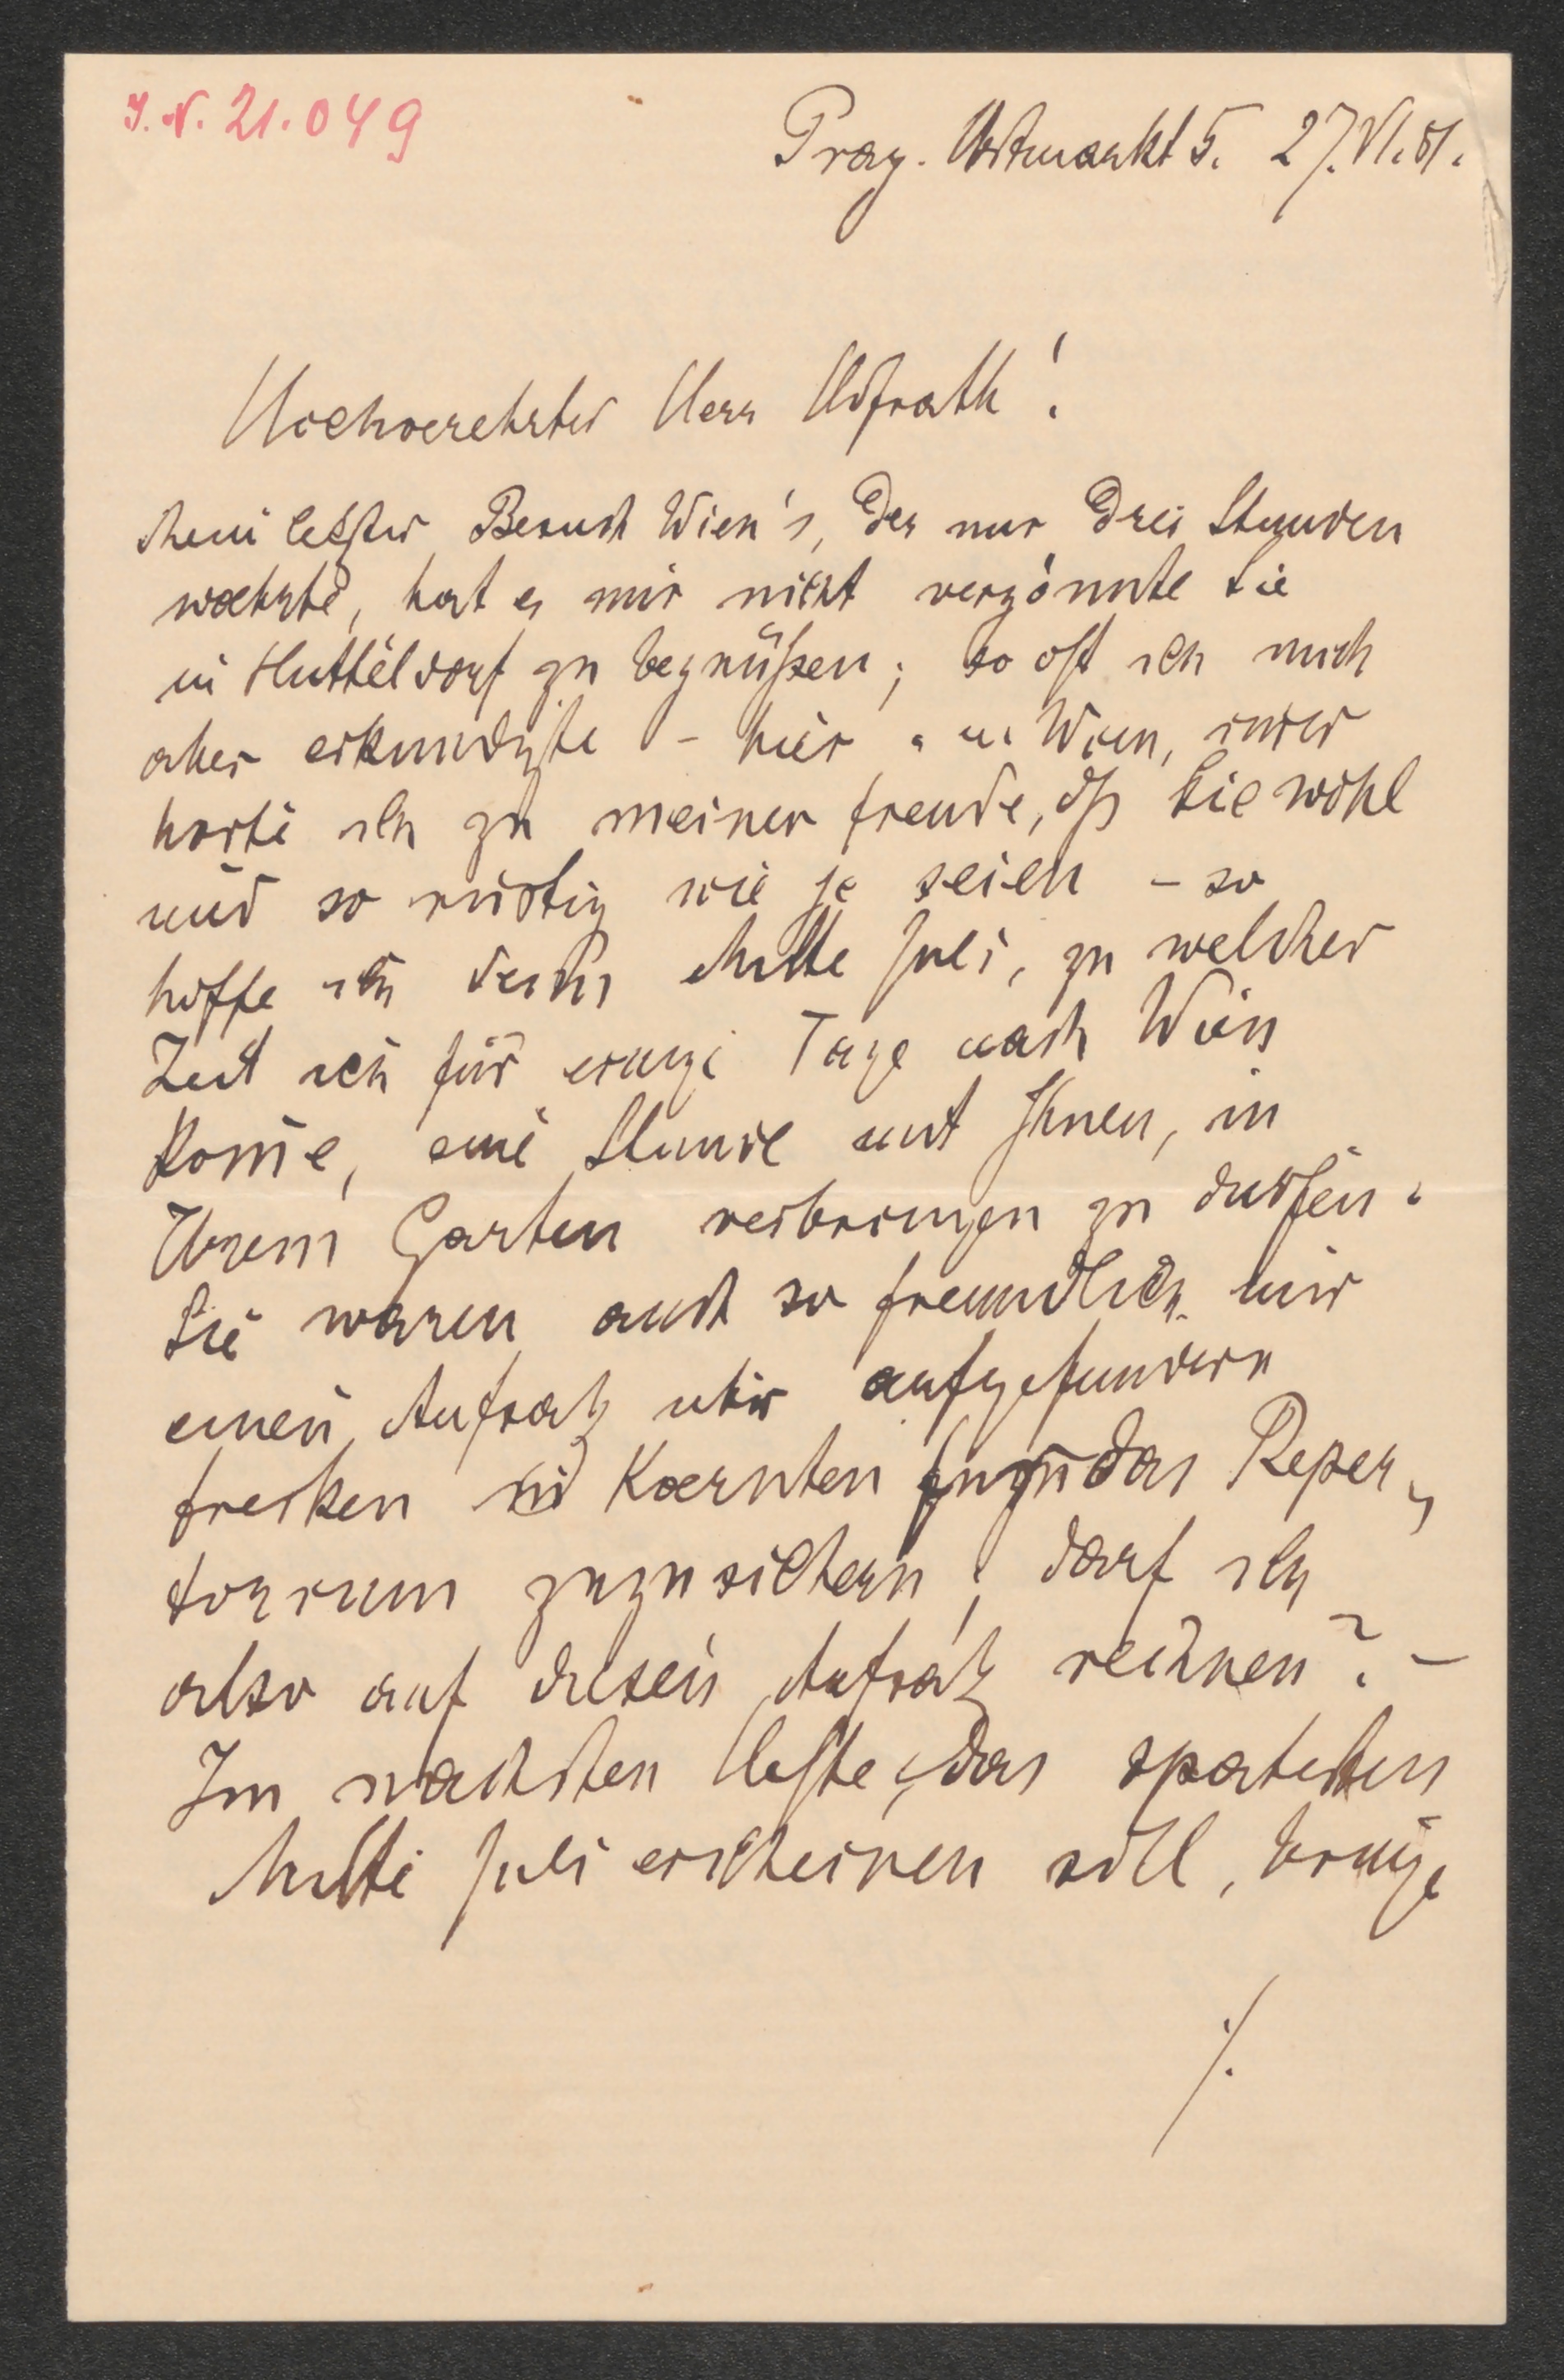 J. N. 21.049
Prag. Obstmarkt 5. 27. VI. 81.
Hochverehrter Herr Hofrath!
Mein letzter Besuch Wien's, der nur drei Stunden
waehrte, hat es mir nicht vergönnte Sie
in Hütteldorf zu begrüßen; so oft ich mich
aber erkundigte – hier u in Wien,
hörte ich zu meiner Freude, dß Sie wohl
und so rüstig wie je seien – so
hoffe ich denn Mitte Juli, zu welcher
Zeit ich für einige Tage nach Wien
kom̄e, eine Stunde mit Ihnen, in
Ihrem Garten verbringen zu dürfen.
Sie waren auch so freundlich mir
einen Aufsatz über aufgefundene
Fresken in Kaernten das Reper„
torium zuzusichern; darf ich
also auf diesen Aufsatz rechnen? –
Im nächsten Hefte, das spätestens
Mitte Juli erscheinen soll, bringe
./.